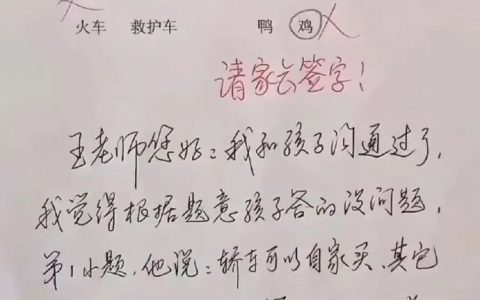 火车 救护车 鸭 鸡
请家长签字!
王老师您好:我和孩子沟通过了,
我觉得根据题意孩子答的没问题,
第1小题,他说:轿车可以自家买、其它